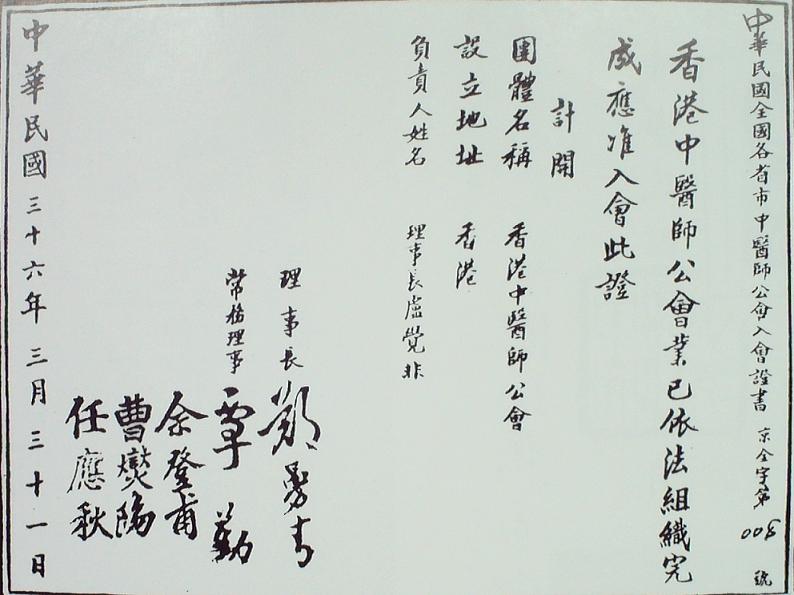 中華民國全國各省市中醫師公會入會證書 京全字第008號
香港中醫師公會業已依法組織完
成應准入會此證
計開
團體名稱 香港中醫師公會
設立地址 香港
負責人姓名 理事長盧覺非
理事長 鄭曼青
常務理事 覃勤
余登甫
曹燮陽
任應秋
中華民國三十六年三月三十一日